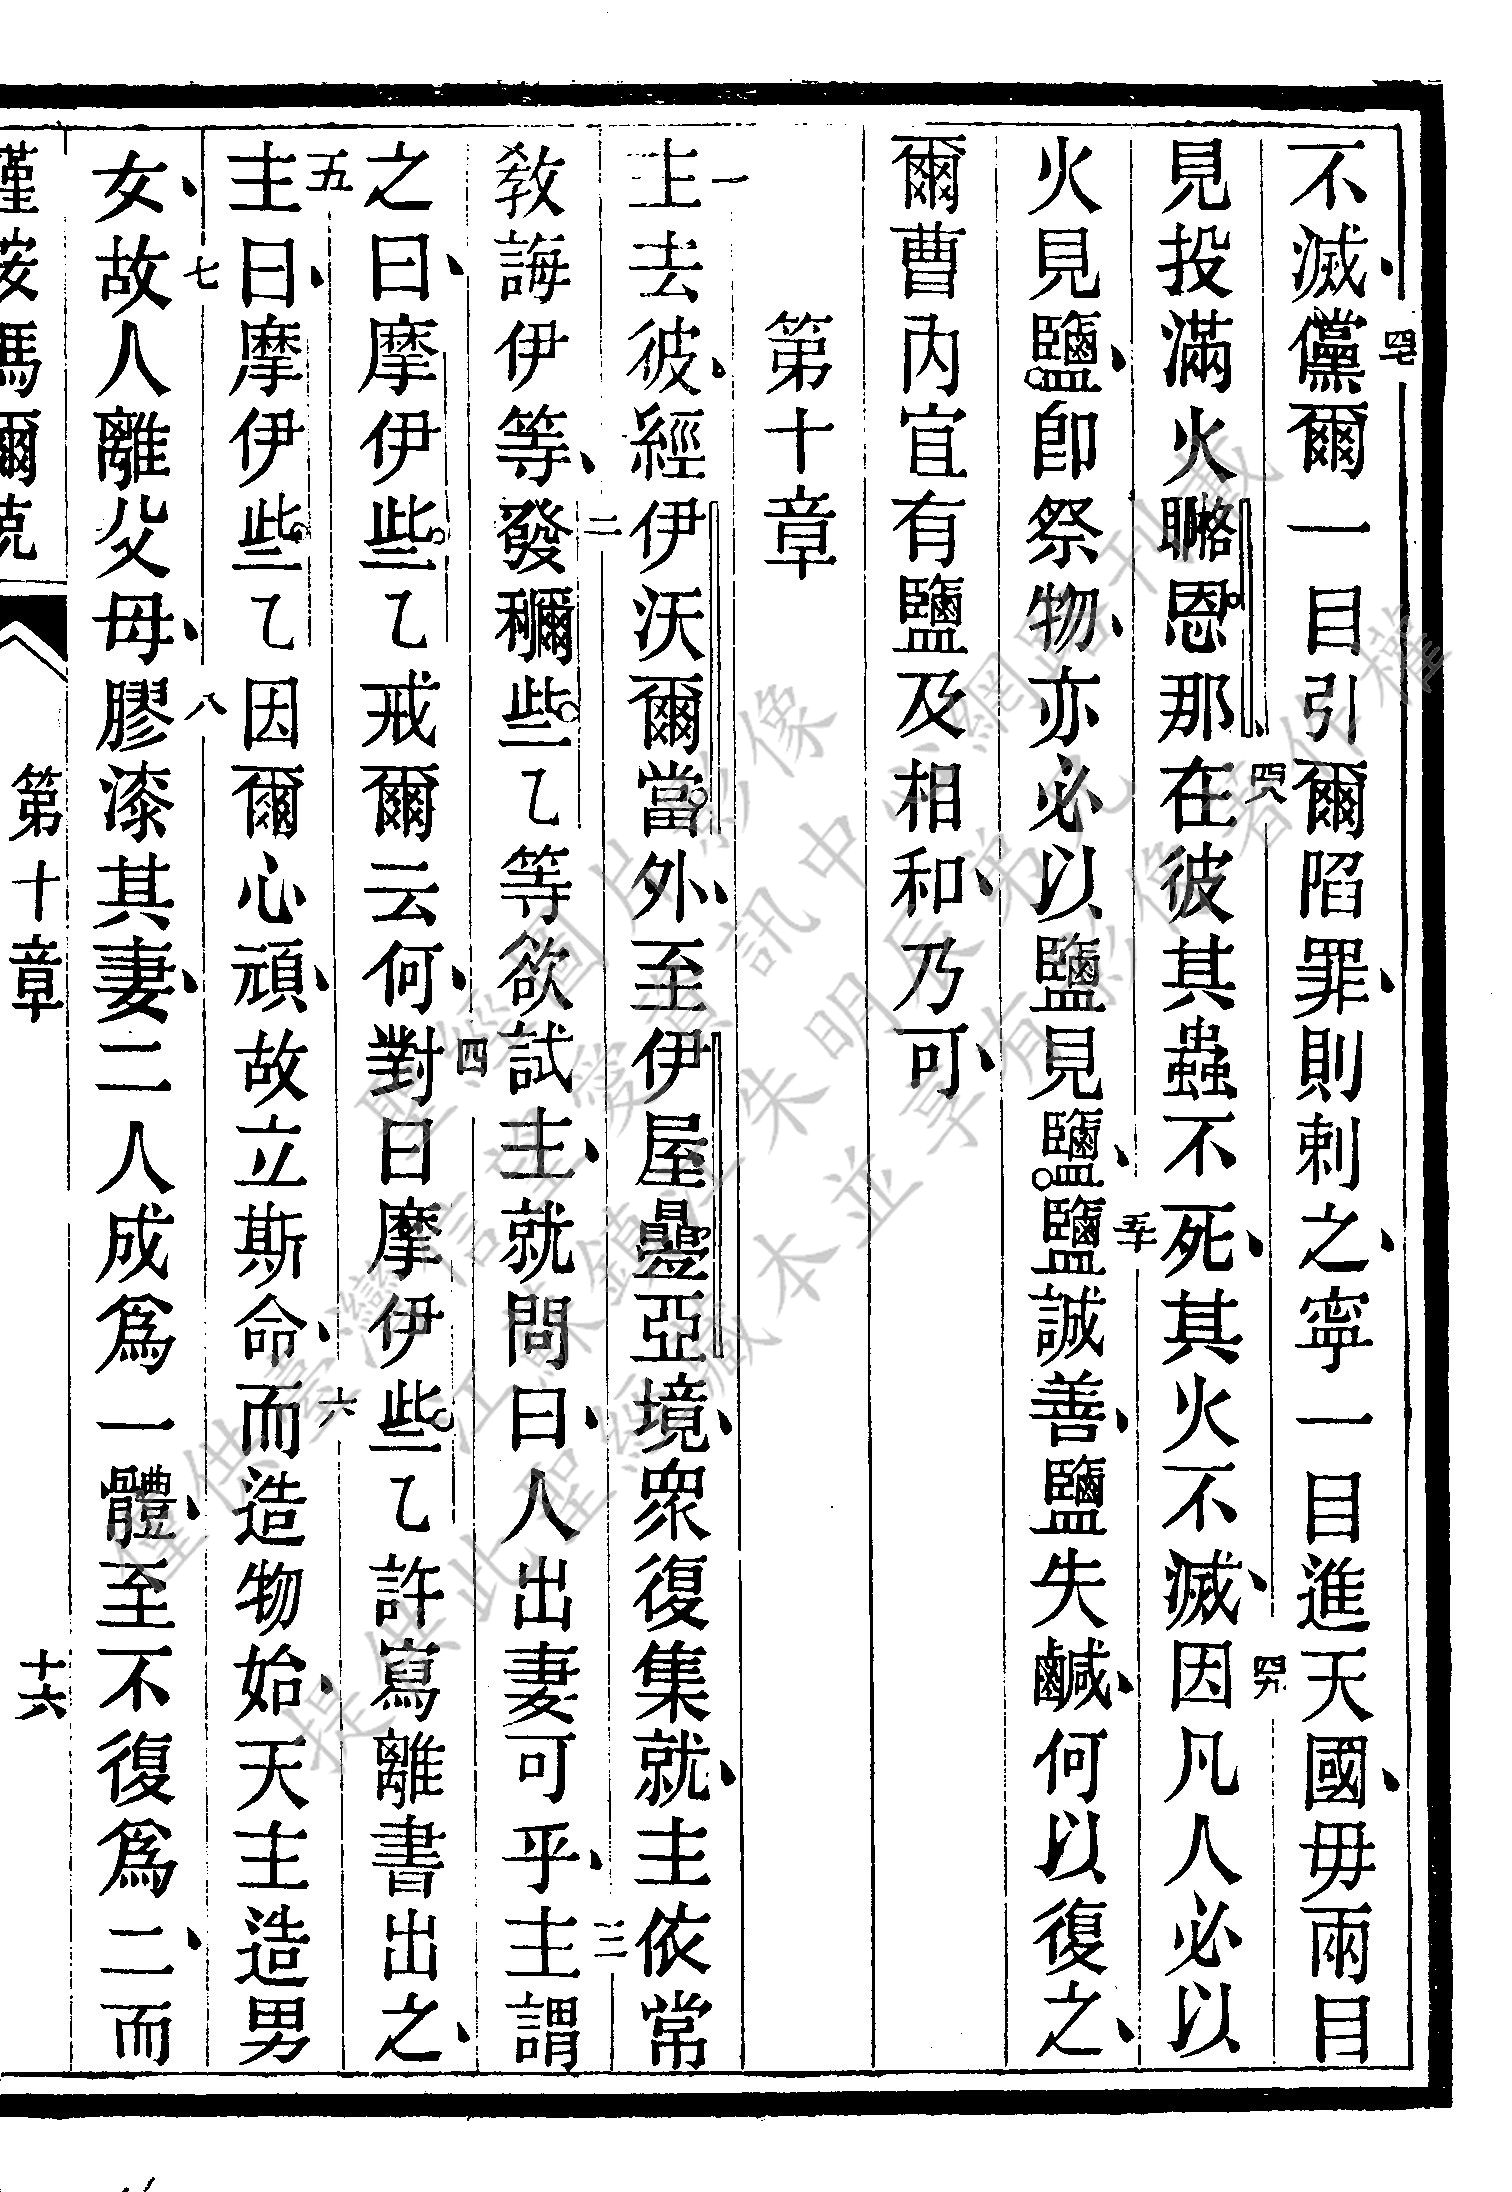 不滅、四七儻爾一目引爾陷罪、則刺之、寧一目進天國、毋兩目
見投滿火𭿇恩那、四八在彼其蟲不死、其火不滅、四九因凡人必以
火見鹽、卽祭物、亦必以鹽見鹽、五十鹽誠善、鹽失鹹、何以復之、
爾曹內宜有鹽及相和、乃可、
第十章
一主去彼、經伊沃爾當外、至伊屋疊亞境、衆復集就、主依常
敎誨伊等、二發穪些乙等欲試主、就問曰、人出妻可乎、三主謂
之曰、摩伊些乙戒爾云何、四對曰摩伊些乙許寫離書出之、
五主曰、摩伊些乙因爾心頑、故立斯命、六而造物始、天主造男
女、七故人離父母、八膠漆其妻、二人成爲一體、至不復爲二、而
謹按馬爾克 第十章 十六
僅供臺灣信望愛資訊中心網路刊載
提供此聖經藏本並享有影像著作權